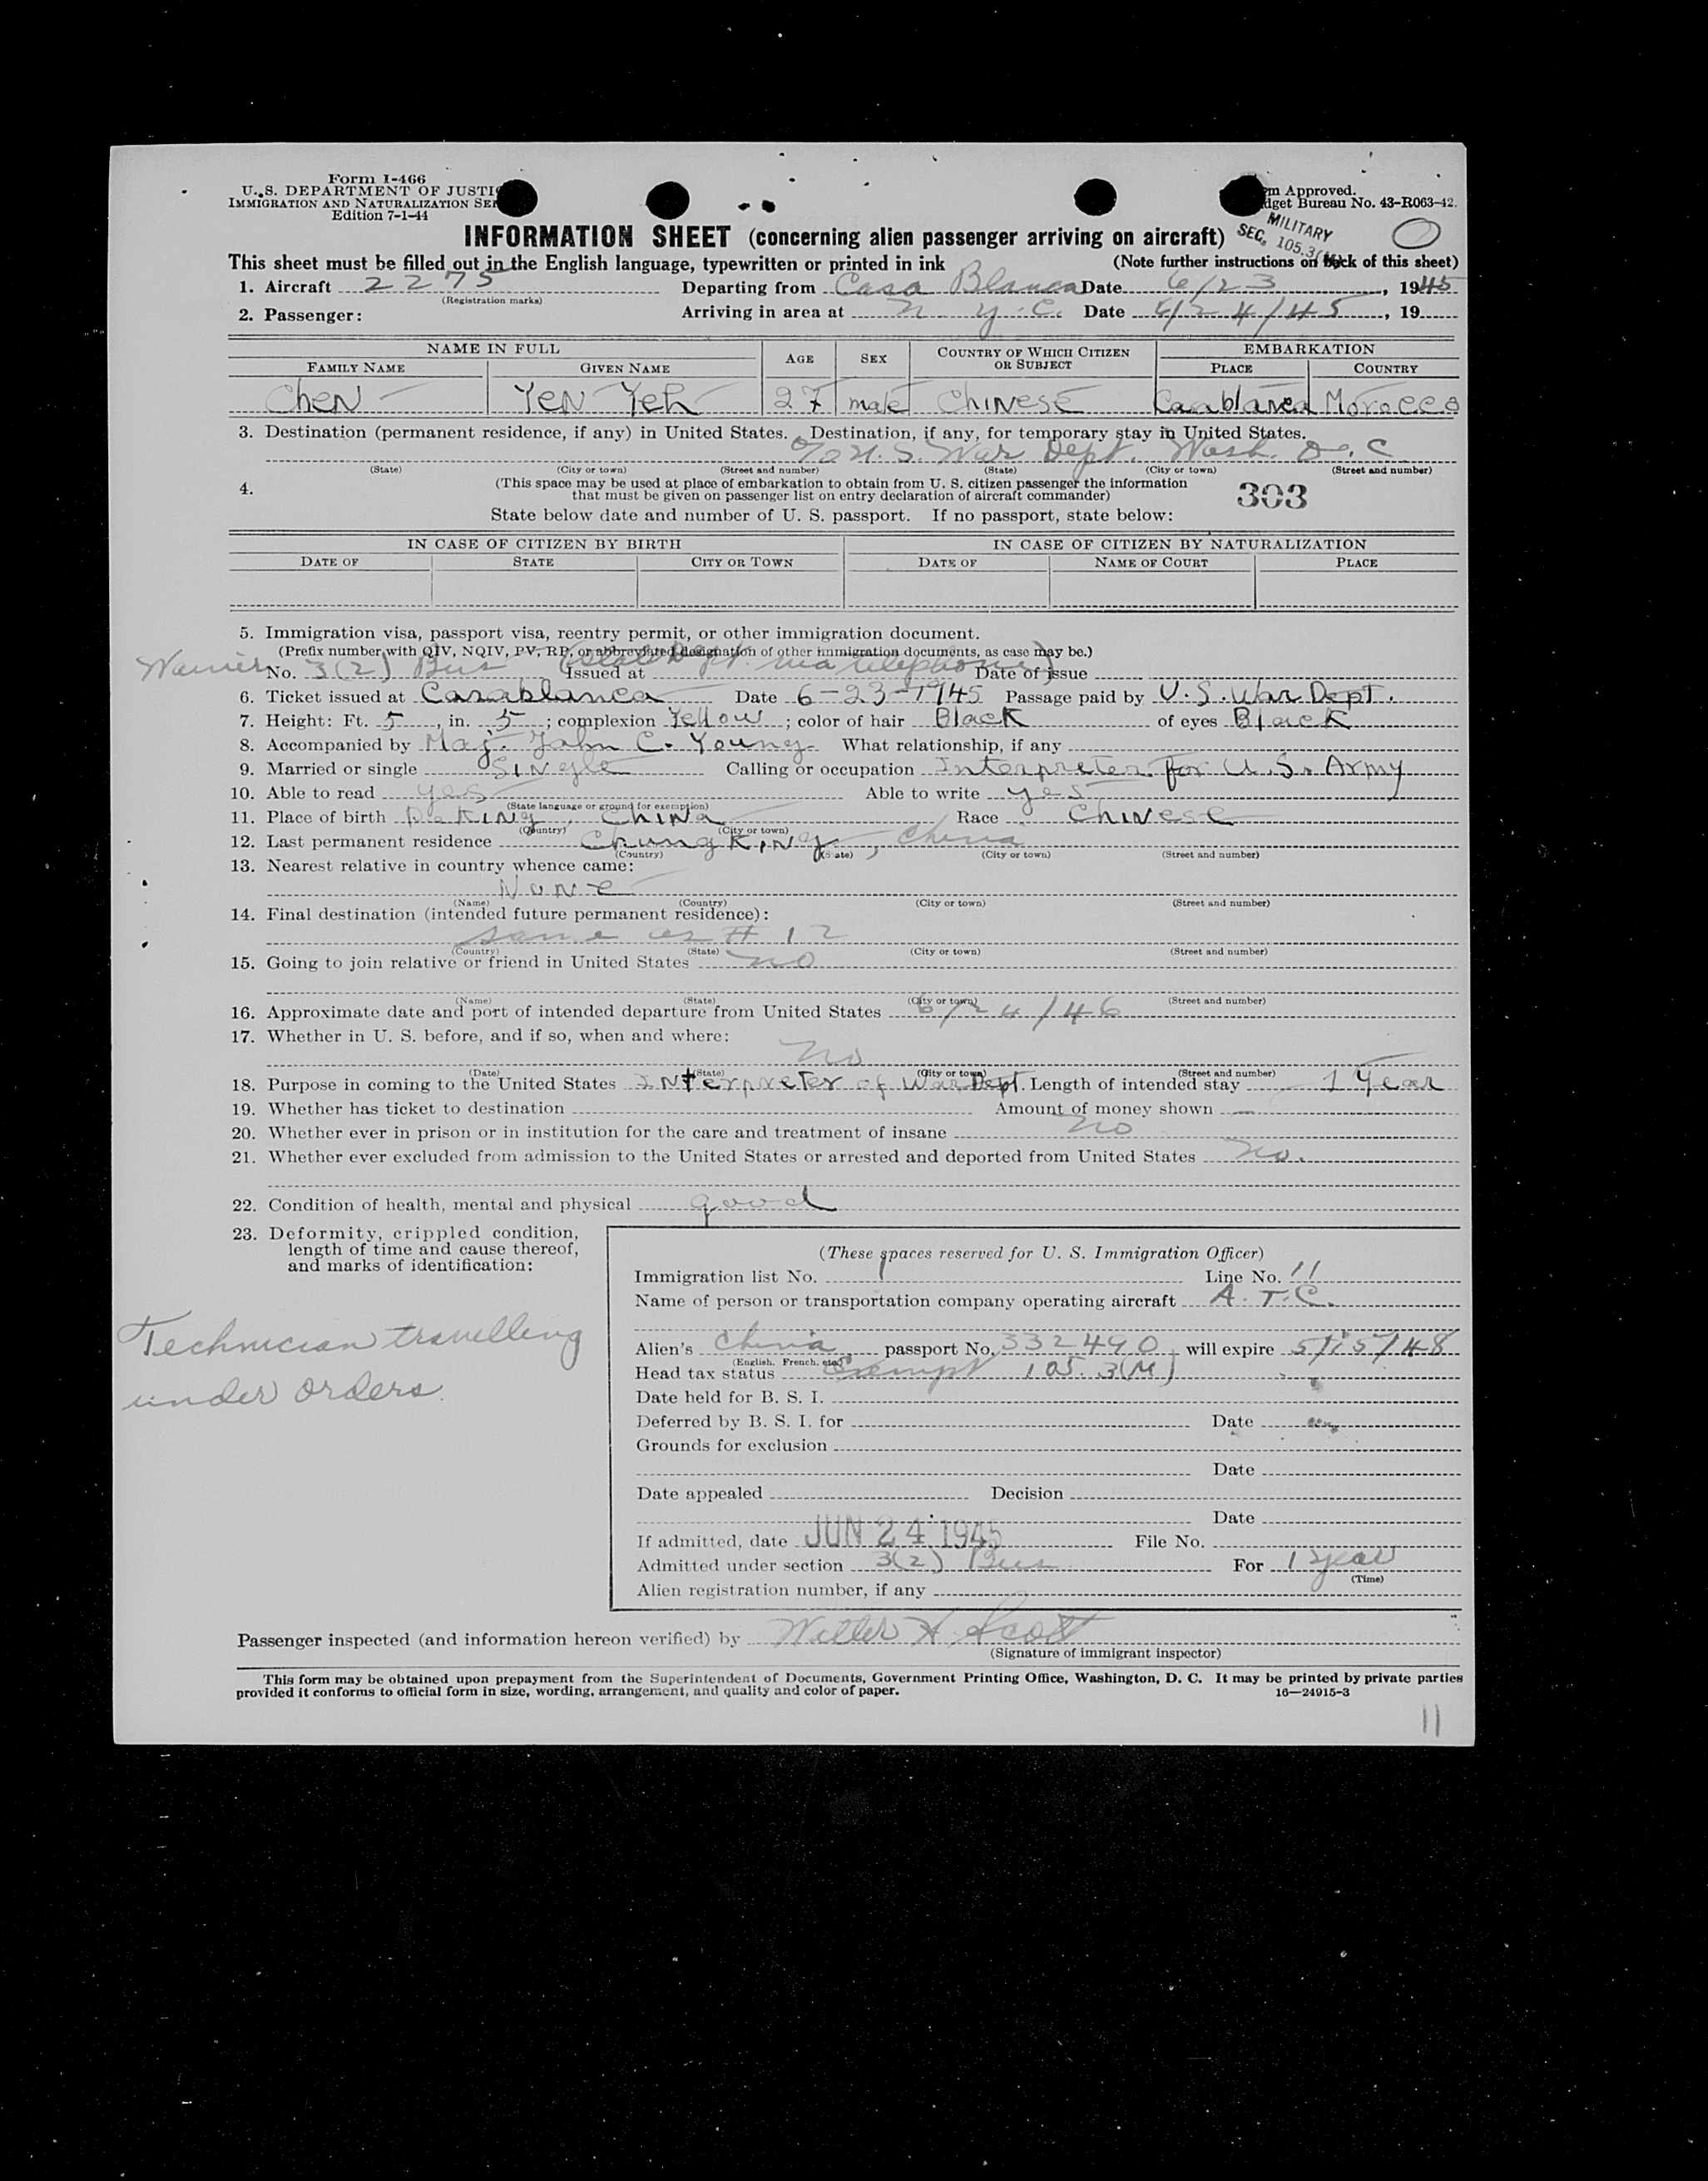 Form I-466
U. S. DEPARTMENT OF JUSTI
IMMIGRATION AND NATURALIZATION SE
Edition 7-1-44
m Approved.
dget Bureau No. 43-R063-42.
MILITARY
SEC. 105.3
INFORMATION SHEET (concerning alien passenger arriving on aircraft)
This sheet must be filled out in the English language, typewritten or printed in ink (Note further instructions on back of this sheet)
1. Aircraft 2275 Departing from Casa Blanca Date 6/23, 1945
(Registration marks)
2. Passenger: Arriving in area at N. Y. C. Date 6/24/45, 19
NAME IN FULL AGE SEX COUNTRY OF WHICH CITIZEN OR SUBJECT EMBARKATION
FAMILY NAME GIVEN NAME PLACE COUNTRY
Chen Yen Yeh 27 male Chinese Casablanca Morocco
3. Destination (permanent residence, if any) in United States. Destination, if any, for temporary stay in United States.
c/o U. S. War Dept. Wash. D. C.
(State) (City or town) (Street and number) (State) (City or town) (Street and number)
4. (This space may be used at place of embarkation to obtain from U. S. citizen passenger the information
that must be given on passenger list on entry declaration of aircraft commander)
303
State below date and number of U. S. passport. If no passport, state below:
IN CASE OF CITIZEN BY BIRTH IN CASE OF CITIZEN BY NATURALIZATION
DATE OF STATE CITY OR TOWN DATE OF NAME OF COURT PLACE
5. Immigration visa, passport visa, reentry permit, or other immigration document.
(Prefix number with QIV, NQIV, PV, RP, or abbreviated designation of other immigration documents, as case may be.)
Waiver No. 3(2) Bus (State Dept. via telephone) Issued at Date of issue
6. Ticket issued at Casablanca Date 6-23-1945 Passage paid by U.S. War Dept.
7. Height: Ft. 5, in. 5; complexion Yellow; color of hair Black of eyes Black
8. Accompanied by Maj. John C. Young What relationship, if any
9. Married or single Single Calling or occupation Interpreter for U.S. Army
10. Able to read yes Able to write yes
(State language or ground for exemption)
11. Place of birth Peking, China Race Chinese
(Country) (City or town)
12. Last permanent residence Chungking, China
(Country) (State) (City or town) (Street and number)
13. Nearest relative in country whence came:
None
(Name) (Country) (City or town) (Street and number)
14. Final destination (intended future permanent residence):
same as # 12
(Country) (State) (City or town) (Street and number)
15. Going to join relative or friend in United States no
(Name) (State) (City or town) (Street and number)
16. Approximate date and port of intended departure from United States 6/24/46
17. Whether in U. S. before, and if so, when and where:
no
(Date) (State) (City or town) (Street and number)
18. Purpose in coming to the United States Interpreter of War Dept. Length of intended stay 1 Year
19. Whether has ticket to destination Amount of money shown —
20. Whether ever in prison or in institution for the care and treatment of insane no
21. Whether ever excluded from admission to the United States or arrested and deported from United States no.
22. Condition of health, mental and physical good
23. Deformity, crippled condition,
length of time and cause thereof,
and marks of identification:
Technician travelling
under orders.
(These spaces reserved for U. S. Immigration Officer)
Immigration list No. 1 Line No. 11
Name of person or transportation company operating aircraft A. T. C.
Alien's China passport No. 332490 will expire 5/15/48
(English, French, etc.)
Head tax status Exempt 105.3(M)
Date held for B. S. I.
Deferred by B. S. I. for Date
Grounds for exclusion
Date
Date appealed Decision
Date
If admitted, date JUN 24 1945 File No.
Admitted under section 3(2) Bus For 1 year
(Time)
Alien registration number, if any
Passenger inspected (and information hereon verified) by Walter H. Scott
(Signature of immigrant inspector)
This form may be obtained upon prepayment from the Superintendent of Documents, Government Printing Office, Washington, D. C. It may be printed by private parties
provided it conforms to official form in size, wording, arrangement, and quality and color of paper. 16—24915-3
11